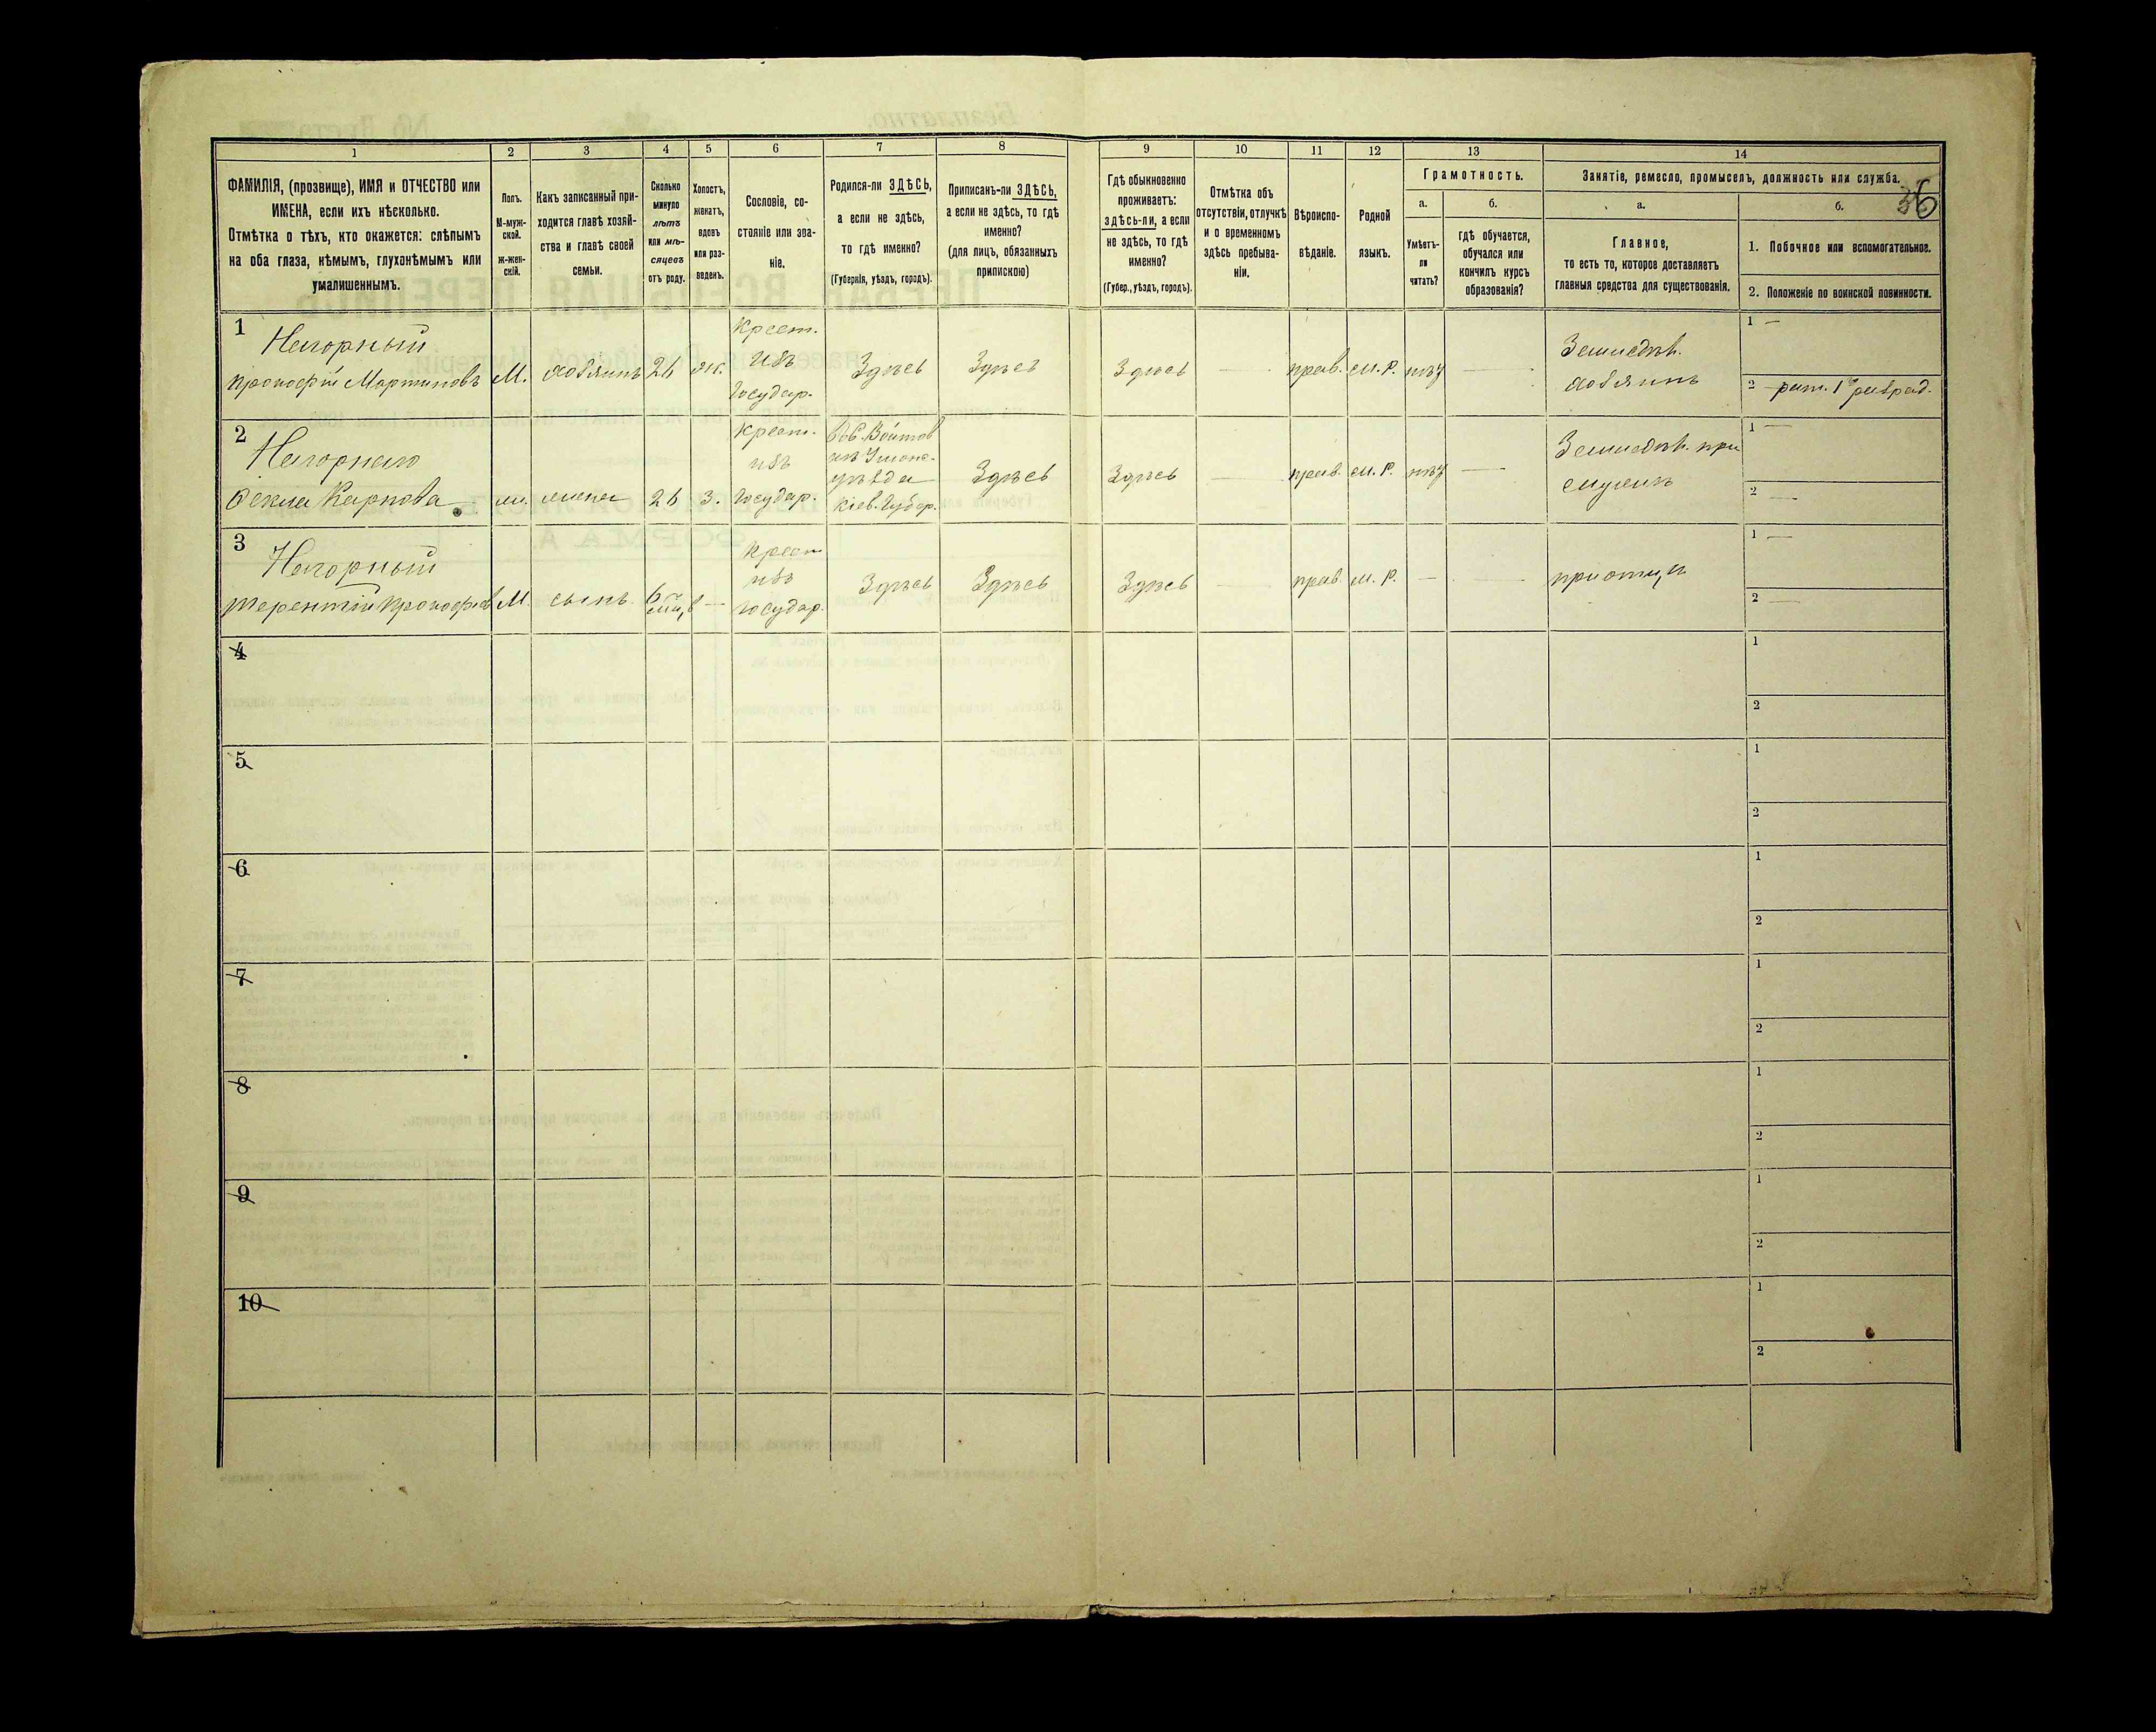 1
2
3
4
5
6
7
8
9
10
11
12
13
14
ФАМИЛІЯ, (прозвище), ИМЯ и ОТЧЕСТВО или
ИМЕНА, если ихъ нѣсколько.
Отмѣтка о тѣхъ, кто окажется: слѣпымъ
на оба глаза, нѣмымъ, глухонѣмымъ или
умалишеннымъ.
Полъ.
М-муж-
ской.
ж-жен-
скій.
Какъ записанный при-
ходится главѣ хозяй-
ства и главѣ своей
семьи.
Сколько
минуло
лѣтъ
или мѣ-
сяцевъ
отъ роду.
Холостъ,
женатъ,
вдовъ
или раз-
веденъ.
Сословіе, со-
стояніе или зва-
ніе.
Родился-ли ЗДѢСЬ,
а если не здѣсь,
то гдѣ именно?
(Губернія, уѣздъ, городъ).
Приписанъ-ли ЗДѢСЬ,
а если не здѣсь, то гдѣ
именно?
(для лицъ, обязанныхъ
припискою)
Гдѣ обыкновенно
проживаетъ:
здѣсь-ли, а если
не здѣсь, то гдѣ
именно?
(Губер., уѣздъ, городъ).
Отмѣтка объ
отсутствіи, отлучкѣ
и о временномъ
здѣсь пребыва-
ніи.
Вѣроиспо-
вѣданіе.
Родной
языкъ.
Грамотность.
а.
Умѣетъ-
ли
читать?
б.
гдѣ обучается,
обучался или
кончилъ курсъ
образованія?
Занятіе, ремесло, промыселъ, должность или служба.
36
а.
Главное,
то есть то, которое доставляетъ
главныя средства для существованія.
б.
1. Побочное или вспомогательное.
2. Положеніе по воинской повинности.
1
Нагорный
Прокофій Мартиновъ
М.
хозяинъ
26
ж.
Крест.
изъ
Государ.
Здѣсь
Здѣсь
Здѣсь
—
прав.
м.р.
нѣт
—
Земледѣл.
хозяинъ
1 —
2 — рат. 1го разряд.
2
Нагорная
Ѳекла Карпова
ж.
жена
26
з.
Крест.
изъ
Государ.
уѣзда
Кіев. Губер.
Здѣсь
Здѣсь
—
прав.
м.р.
нѣт
—
Земледѣл. при
мужѣ
1 —
2 —
3
Нагорный
Терентій Прокофіев
М.
сынъ
6ть
міц,в
—
Крест
изъ
Государ.
Здѣсь
Здѣсь
Здѣсь
—
прав.
м.р.
—
—
при отцѣ
1 —
2 —
4
1
2
5
1
2
6
1
2
7
1
2
8
1
2
9
1
2
10
1
2